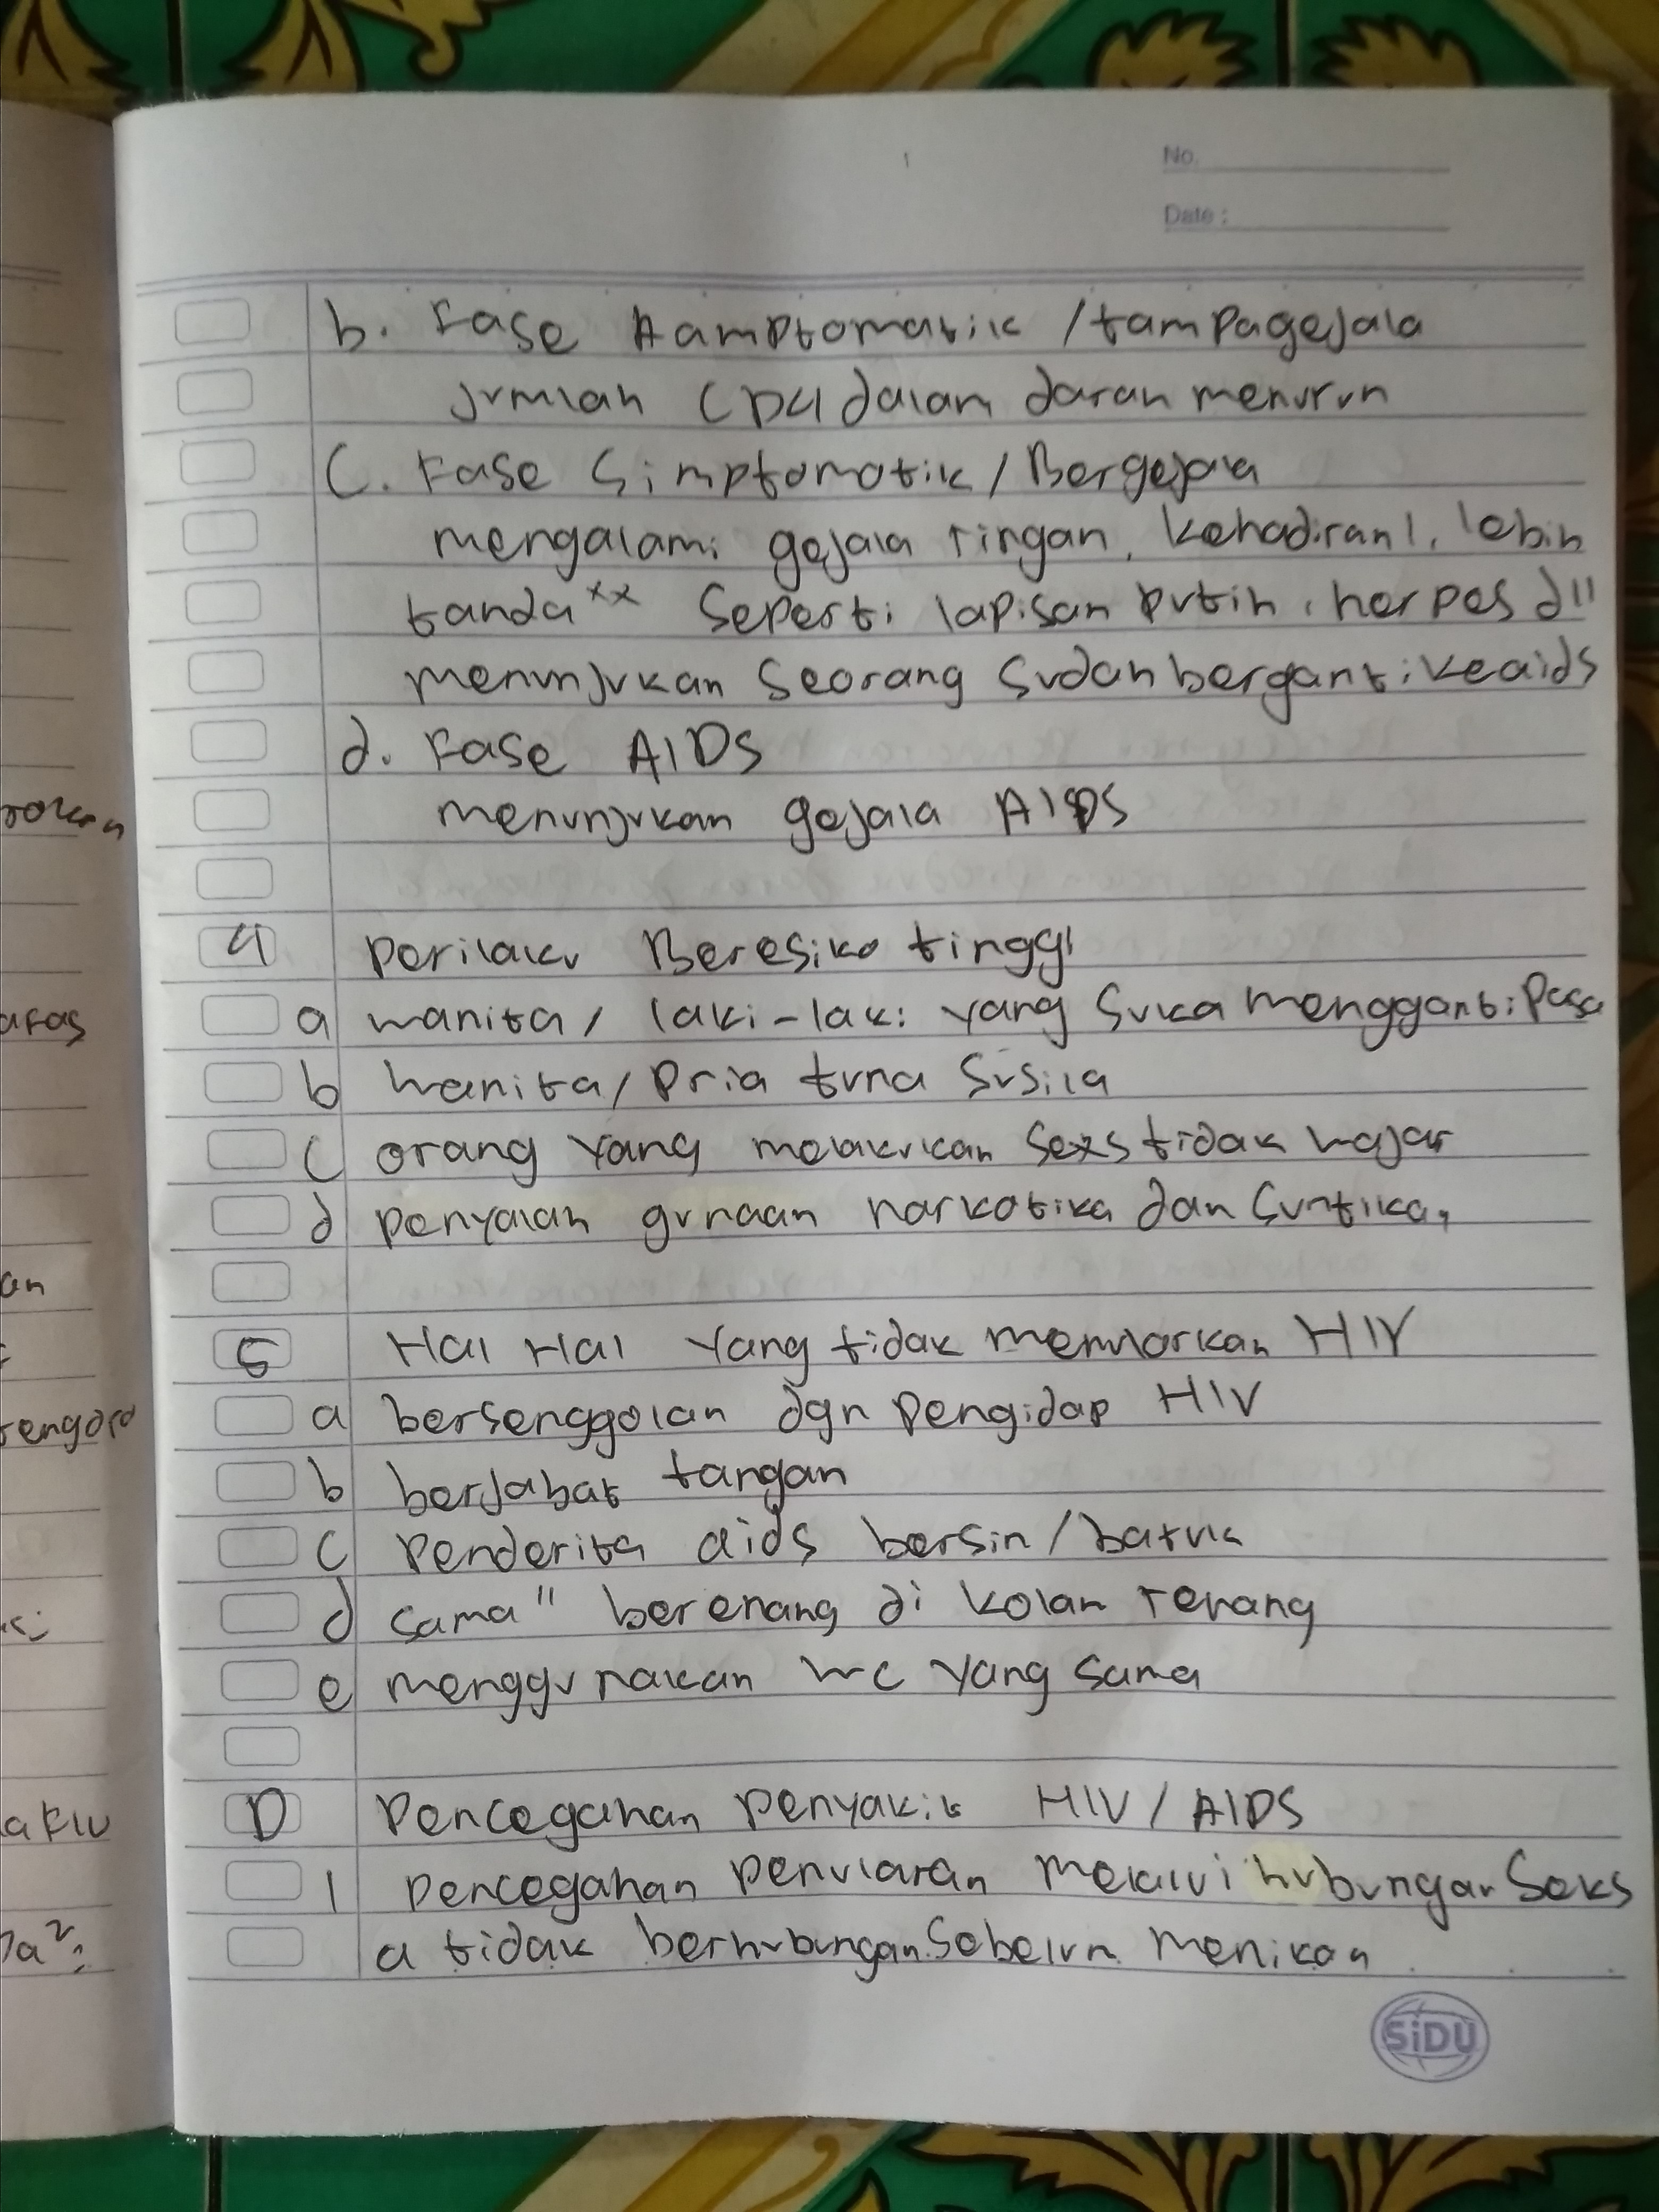 No.
Date :
b. Fase Aamptomatik /tampagejala
jumlah CD4 dalam darah menurun
C. Fase Simptomatik / Bergejala
mengalami gejala ringan, kehadiran 1, lebih
tanda ** seperti lapisan putih, herpes dll
menunjukan seorang sudah berganti ke aids
d. Fase AIDS
menunjukan gejala AIDS
4 Perilaku Beresiko tinggi
a wanita / laki-laki yang suka mengganti Pasa
b wanita / Pria tuna Susila
c orang yang melakukan sexs tidak wajar
d penyalah gunaan narkotika dan suntikan
5 Hal Hal yang tidak menularkan HIV
a bersenggolan dgn Pengidap HIV
b berjabat tangan
c Penderita aids bersin / batuk
d sama" berenang di kolam renang
e menggunakan wc yang sama
D Pencegahan Penyakit HIV / AIDS
1 Pencegahan Penularan Melalui hubungan Seks
a tidak berhubungan Sebelum menikah
rokan
afas
an
aklu
SiDU